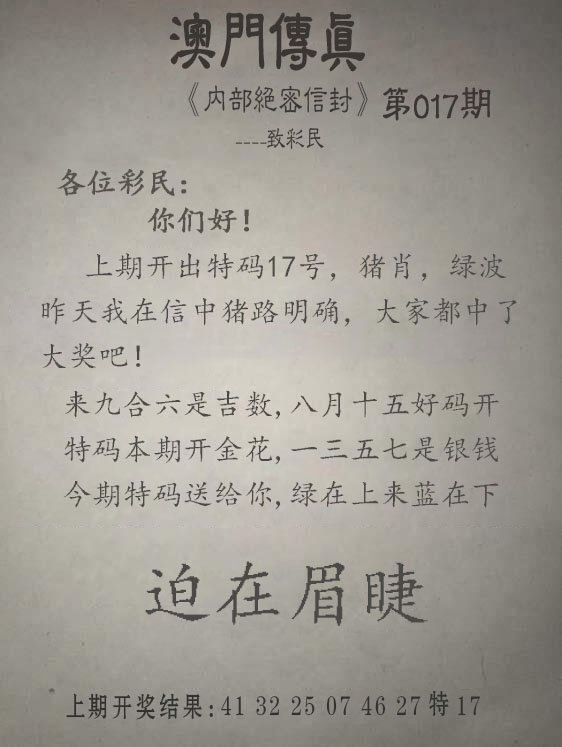 澳門傳真
《内部絕密信封》第017期
----致彩民
各位彩民:
你们好!
上期开出特码17号，猪肖，绿波
昨天我在信中猪路明确，大家都中了
大奖吧!
来九合六是吉数,八月十五好码开
特码本期开金花,一三五七是银钱
今期特码送给你,绿在上来蓝在下
迫在眉睫
上期开奖结果:41 32 25 07 46 27 特 17